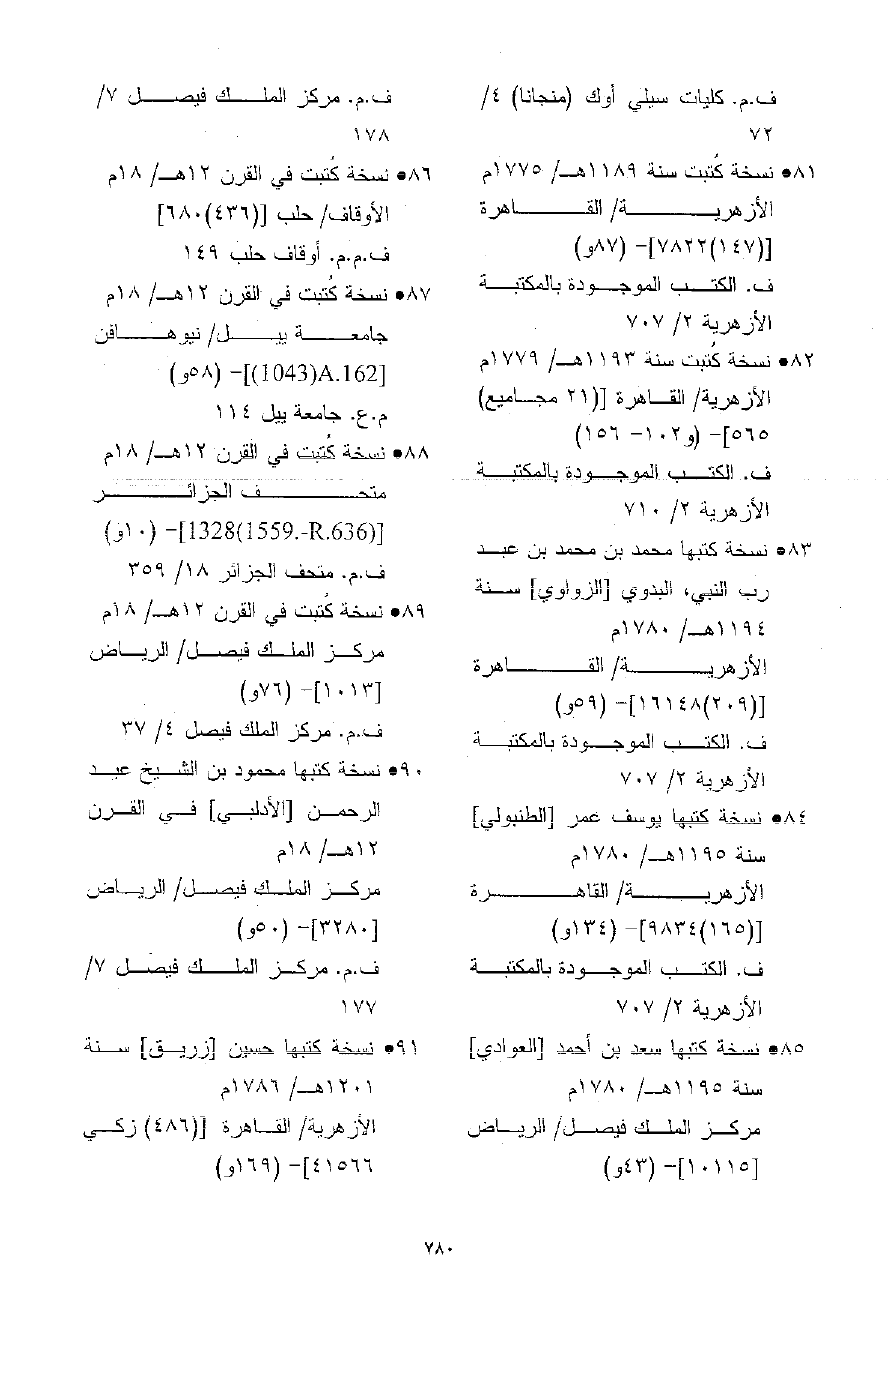 ف.م. كليات سيلي أوك (منجانا) ٤/
٧٢
٨١● نسخة كُتبت سنة ١١٨٩هـ/ ١٧٧٥م
الأزهريـة/ القـاهرة
[(١٤٧)٧٨٢٢]- (٨٧و)
ف. الكتـب الموجـودة بالمكتبـة
الأزهرية ٢/ ٧٠٧
٨٢● نسخة كُتبت سنة ١١٩٣هـ/ ١٧٧٩م
الأزهرية/ القـاهرة [(٢١ مجـاميع)
٥٦٥]- (و١٠٢- ١٥٦)
ف. الكتـب الموجـودة بالمكتبـة
الأزهرية ٢/ ٧١٠
٨٣● نسخة كتبها محمد بن محمد بن عبـد
رب النبي، البدوي [الزواوي] سـنة
١١٩٤هـ/ ١٧٨٠م
الأزهريـة/ القـاهرة
[(٢٠٩)١٦١٤٨]- (٥٩و)
ف. الكتـب الموجـودة بالمكتبـة
الأزهرية ٢/ ٧٠٧
٨٤● نسخة كتبها يوسف عمر [الطنبولي]
سنة ١١٩٥هـ/ ١٧٨٠م
الأزهريـة/ القاهـرة
[(١٦٥)٩٨٣٤]- (١٣٤و)
ف. الكتـب الموجـودة بالمكتبـة
الأزهرية ٢/ ٧٠٧
٨٥● نسخة كتبها سعد بن أحمد [العوادي]
سنة ١١٩٥هـ/ ١٧٨٠م
مركـز الملـك فيصـل/ الريـاض
[١٠١١٥]- (٤٣و)
ف.م. مركز الملـك فيصـل ٧/
١٧٨
٨٦● نسخة كُتبت في القرن ١٢هـ/ ١٨م
الأوقاف/ حلب [(٤٣٦)٦٨٠]
ف.م.م. أوقاف حلب ١٤٩
٨٧● نسخة كُتبت في القرن ١٢هـ/ ١٨م
جامعـة ييـل/ نيوهـافن
[(1043)A.162]- (٥٨و)
م.ع. جامعة ييل ١١٤
٨٨● نسخة كُتبت في القرن ١٢هـ/ ١٨م
متحـف الجزائـر
[1328(1559.-R.636)]- (١٠و)
ف.م. متحف الجزائر ١٨/ ٣٥٩
٨٩● نسخة كُتبت في القرن ١٢هـ/ ١٨م
مركـز الملـك فيصـل/ الريـاض
[١٠١٣]- (٧٦و)
ف.م. مركز الملك فيصل ٤/ ٣٧
٩٠● نسخة كتبها محمود بن الشـيخ عبـد
الرحمـن [الأدلبـي] فـي القـرن
١٢هـ/ ١٨م
مركـز الملـك فيصـل/ الريـاض
[٣٢٨٠]- (٥٠و)
ف.م. مركـز الملـك فيصـل ٧/
١٧٧
٩١● نسخة كتبها حسين [زريـق] سـنة
١٢٠١هـ/ ١٧٨٦م
الأزهرية/ القـاهرة [(٤٨٦) زكـي
٤١٥٦٦]- (١٦٩و)
٧٨٠